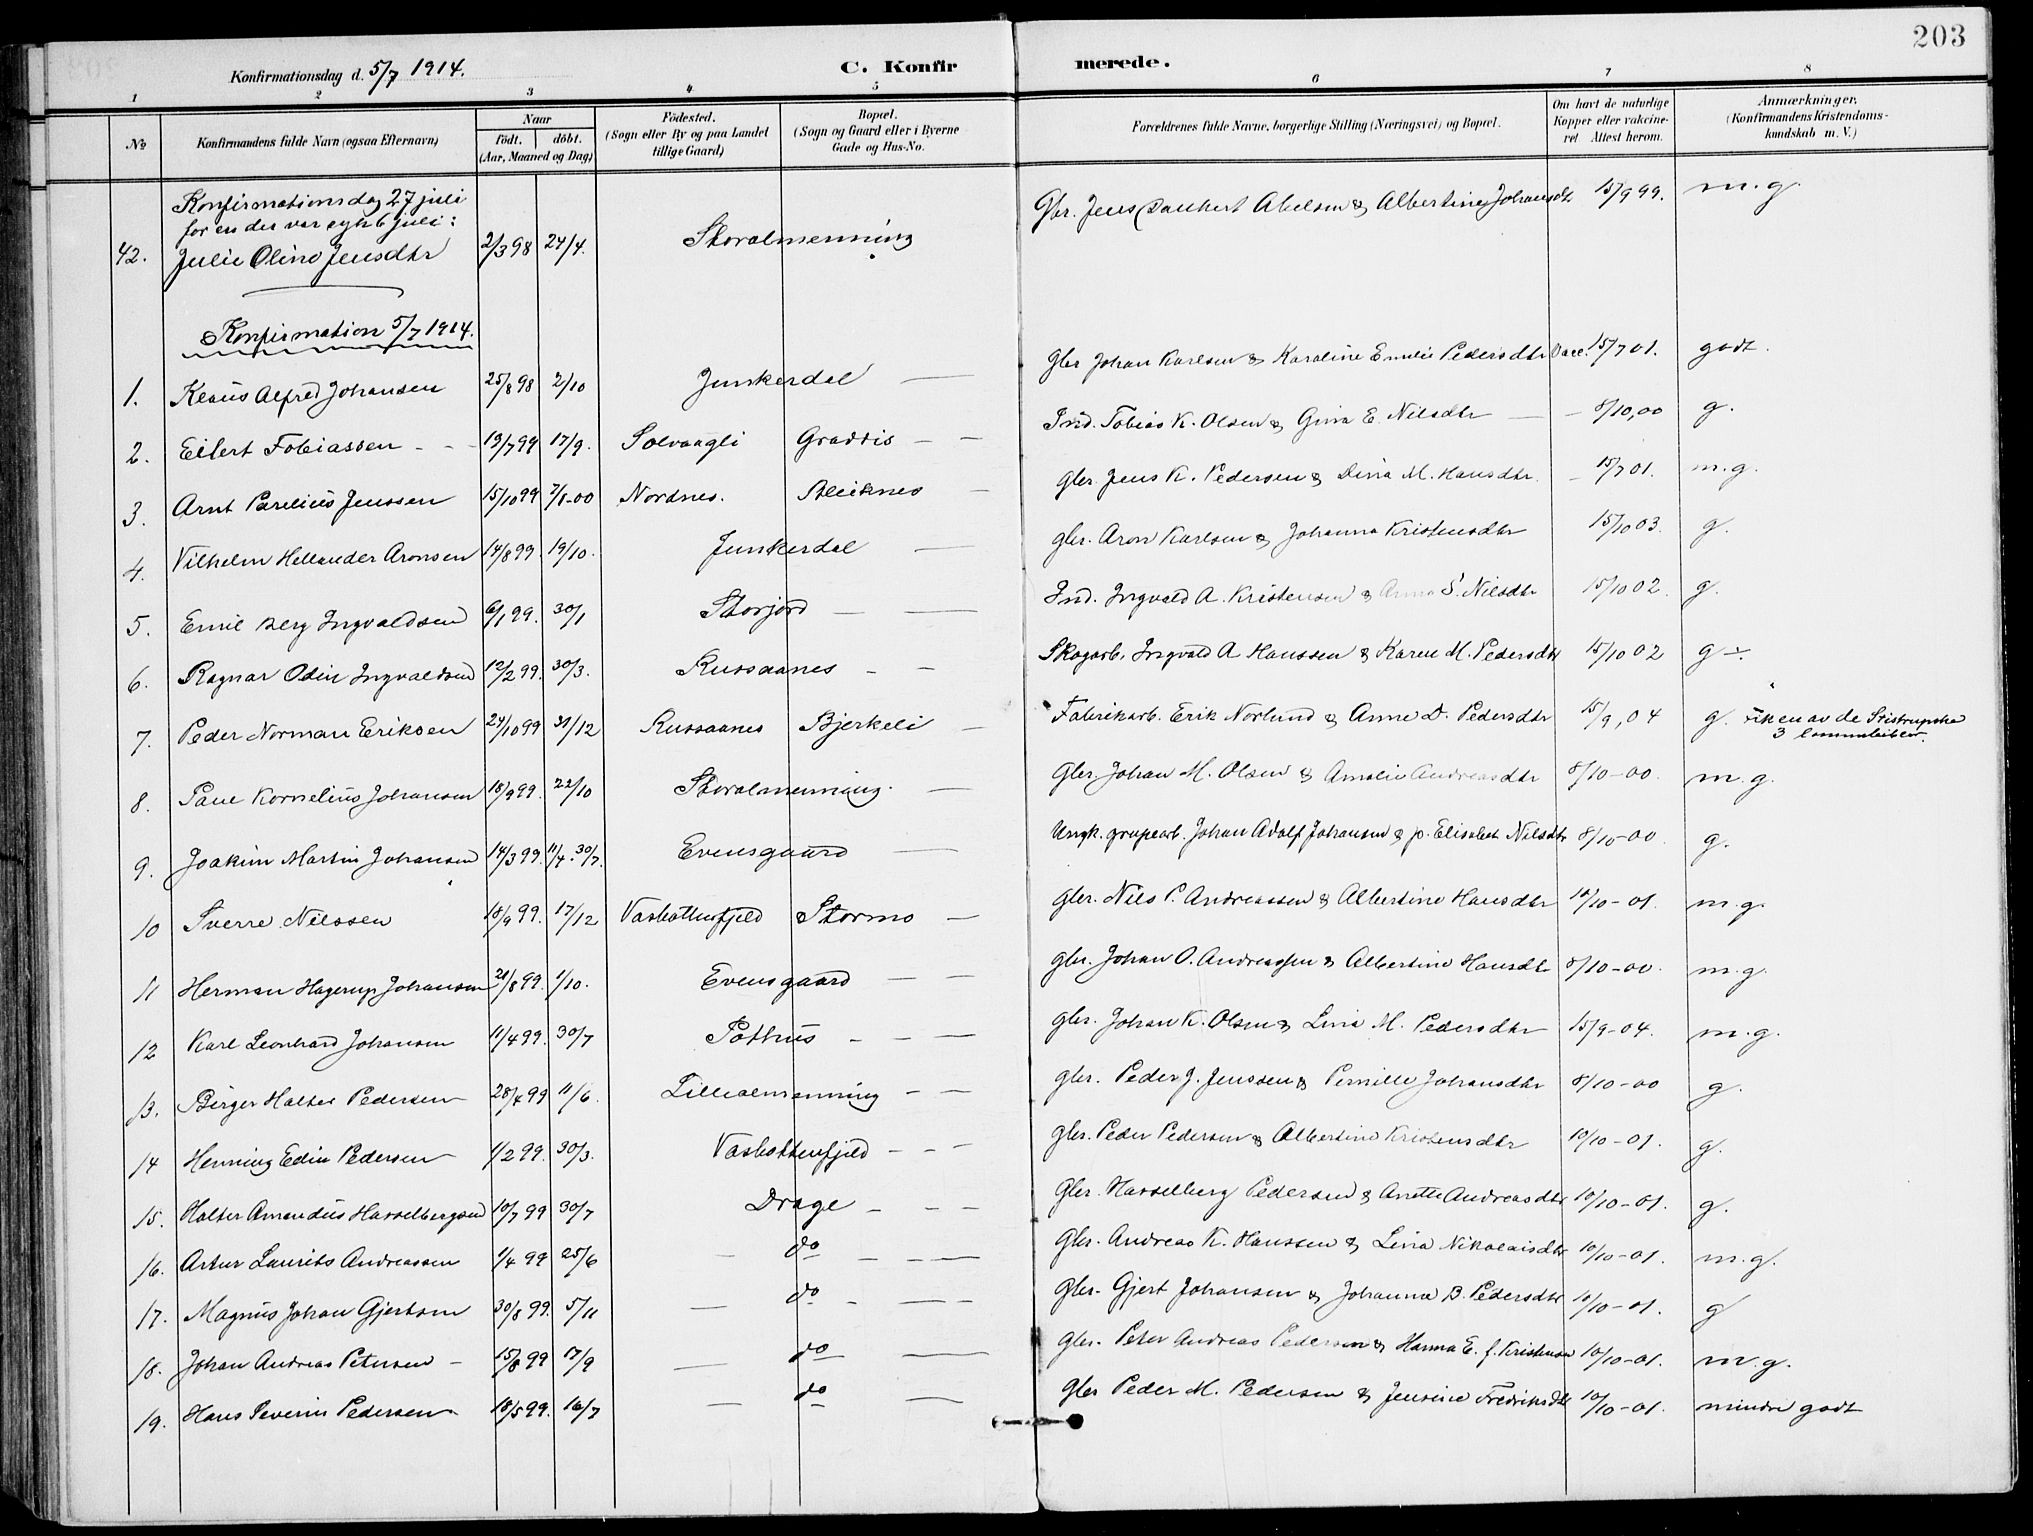 203
Konfirmationsdag d. 5/7 1914.
C. Konfirmerede.
1 2 3 4 5 6 7 8
No
Konfirmandens fulde Navn (ogsaa Efternavn)
Naar
födt. döbt.
(Aar, Maaned og Dag)
Födested.
(Sogn eller By og paa Landet
tillige Gaard)
Bopæl.
(Sogn og Gaard eller i Byerne
Gade og Hus-No.
Forældrenes fulde Navne, borgerlige Stilling (Næringsvei) og Bopæl.
Om havt de naturlige
Kopper eller vakcine-
ret Attest herom.
Anmærkninger.
(Konfirmandens Kristendoms-
kundskab m. V.)
Konfirmationsdag 27 juli
for en der var syk 6 juli:
42. Julie Oline Jensdtr 2/3 98 24/4. Storalmenning Gbr. Jens Dankert Abelsen & Albertine Johansdtr 15/9 99. m.g.
Konfirmation 5/7 1914.
1. Klaus Alfred Johansen 25/8 98 2/10 Junkerdal — Gbr Johan Karlsen & Karoline Emilie Pedersdtr Vacc. 15/7 01. godt.
2. Eilert Tobiassen - - 13/7 99 17/9. Solvaagli Graddis — — Ind. Tobias K. Olsen & Gina E. Nilsdtr — - 8/10,00 g.
3. Arnt Parelius Jenssen 15/10 99 7/1-00 Nordnes. Bleiknes — gbr. Jens K. Pedersen & Dina M. Hansdtr. - 15/7 01. m.g.
4. Vilhelm Hellander Aronsen 14/8 99. 19/10. Junkerdal — gbr. Aron Karlsen & Johanna Kristensdtr 15/10 03. g.
5. Emil Berg Ingvaldsen 6/1 99. 30/1 Storjord — — Ind. Ingvald A. Kristensen & Anna S. Nilsdtr 15/10 02. g.
6. Ragnar Odin Ingvaldsen 12/2 99. 30/3. Russaanes - — Skogarb. Ingvald A Hanssen & Karen M. Pedersdtr 15/10 02 g÷.
7. Peder Norman Eriksen 24/10 99 31/12 Russaanes Bjerkeli — Fabrikarb. Erik Norlund & Anne D. Pedersdtr 15/9, 04 g. Fik en av de
3
8. Paul Kornelius Johansen 18/9 99. 22/10 Storalmenning. — Gbr. Johan M. Olsen & Amalie Andreasdtr 8/10-00. m.g.
9. Joakim Martin Johansen 14/3 99. 11/4. 30/7. Evensgaard — Ungk. grubearb. Johan Adolf Johansen & p. Elisabet Nilsdtr 8/10-00. g.
10 Sverre Nilssen 18/9 99. 17/12 Vasbottenfjeld Stormo — gbr. Nils P. Andreassen & Albertine Hansdtr 10/10-01. m.g.
11 Herman Hagerup Johansen 21/8 99. 1/10. Evensgaard — — gbr. Johan O. Andreassen & Albertine Hansdtr 8/10-00. m.g.
12 Karl Leonhard Johansen 11/4 99. 30/7 Pothus - - — gbr. Johan K. Olsen & Lina M. Pedersdtr — 15/9-04. m.g.
13. Birger Halter Pedersen 28/4 99 11/6. Lillealmenning - — gbr. Peder J. Jenssen & Pernille Johansdtr 8/10-00 g.
14 Henning Edin Pedersen 1/2 99. 30/3. Vasbottenfjeld - - gbr. Peder Pedersen & Albertine Kristensdtr 10/10-01. g.
15. Halter Amandus Hasselbergsen 10/7 99 30/7 Drage - - - Gbr. Hasselberg Pedersen & Anette Andreasdtr 10/10-01. g.
16. Artur Laurits Andreassen 1/4 99 25/6 — do - - — Gbr. Andreas K. Hanssen & Lina Nikolaisdtr 10/10-01. m.g.
17. Magnus Johan Gjertsen 30/8 99. 5/11 — do - — — Gbr. Gjert Johansen & Johanna B. Pedersdtr 10/10-01. g
18. Johan Andreas Petersen - 15/8 99 17/9 — do — Gbr. Peter Andreas Pedersen & Hanna E. f. Kristensen 10/10-01. m.g.
19. Hans Severin Pedersen 18/5 99. 16/7 — do — Gbr Peder M. Pedersen & Jensine Fredriksdtr 10/10-01. mindre godt